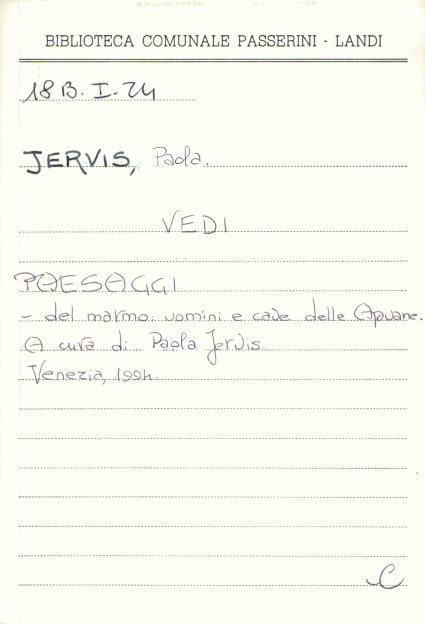 BIBLIOTECA COMUNALE PASSERINI - LANDI
18 B. I. 24
JERVIS, Paola.
VEDI
PAESAGGI
- del marmo: uomini e cave delle Apuane.
A cura di Paola Jervis.
Venezia, 1994.
C